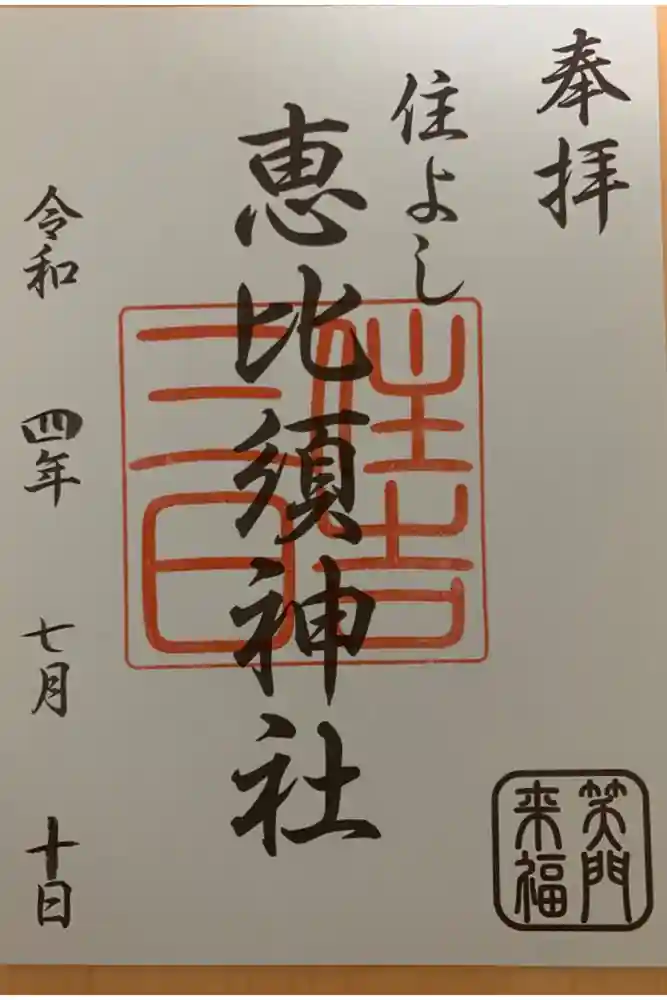 奉拝
住よし
恵比須神社
住吉
三日
令和 四年 七月 十日
笑門
来福